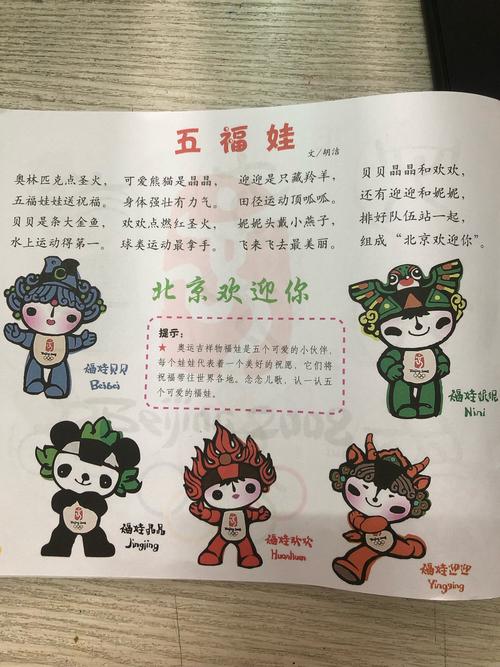 五福娃
文/胡洁
奥林匹克点圣火，
五福娃娃送祝福。
贝贝是条大金鱼，
水上运动得第一。
可爱熊猫是晶晶，
身体强壮有力气。
欢欢点燃红圣火，
球类运动最拿手。
迎迎是只藏羚羊，
田径运动顶呱呱。
妮妮头戴小燕子，
飞来飞去最美丽。
贝贝晶晶和欢欢，
还有迎迎和妮妮，
排好队伍站一起，
组成“北京欢迎你”。
北京欢迎你
提示：
★ 奥运吉祥物福娃是五个可爱的小伙伴，
每个娃娃代表着一个美好的祝愿，它们将
祝福带往世界各地。念念儿歌，认一认五
个可爱的福娃。
福娃贝贝
Beibei
福娃妮妮
Nini
福娃晶晶
Jingjing
福娃欢欢
Huanhuan
福娃迎迎
Yingying
Beijing 2008